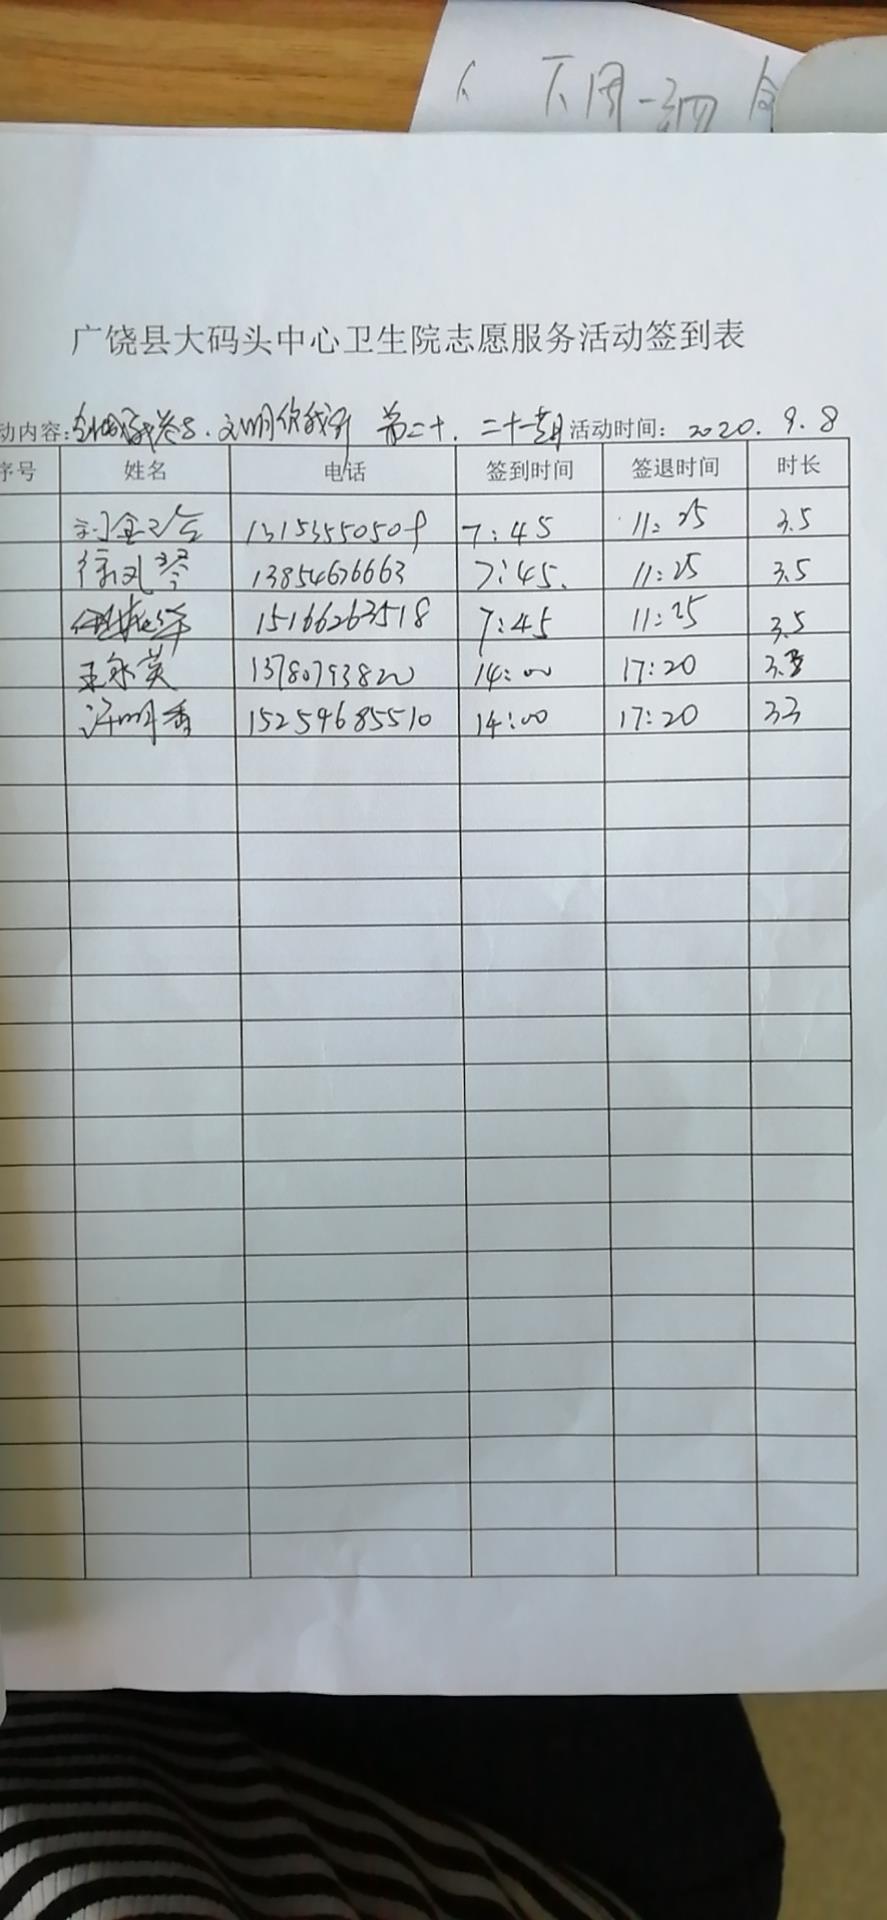 下周一
广饶县大码头中心卫生院志愿服务活动签到表
动内容:全城 文明你我行 第二十、二十一期 活动时间: 2020.9.8
序号 姓名 电话 签到时间 签退时间 时长
13153550509 7:45 11:25 3.5
徐凤琴 13854676663 7:45. 11:25 3.5
15166263518 7:45 11:25 3.5
王永英 13780793820 14:00 17:20 3.3
许明香 15254685510 14:00 17:20 33